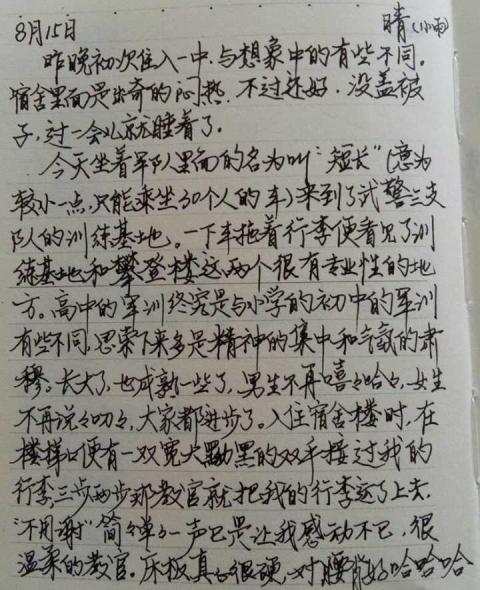 8月15日 晴(小雨)
昨晚初次住入一中,与想象中的有些不同。
宿舍里面是出奇的闷热,不过还好,没盖被
子,过一会儿就睡着了。
今天坐着军队里面的名为叫“短长”(意为
较小一点,只能乘坐30个人的车)来到了武警三支
队的训练基地。一下车拖着行李便看见了训
练基地和攀登楼这两个很有专业性的地
方。高中的军训终究是与小学的初中的军训
有些不同,思索下来多是精神的集中和气氛的肃
穆。长大了,也成熟一些了,男生不再嘻々哈々,女生
不再说々叨々,大家都进步了。入住宿舍楼时,在
楼梯口便有一双宽大黝黑的双手接过我的
行李,三步两步那教官就把我的行李运了上去.
“不用谢”简々单々一声已是让我感动不已,很
温柔的教官。床板真々很硬,对腰背好哈哈哈